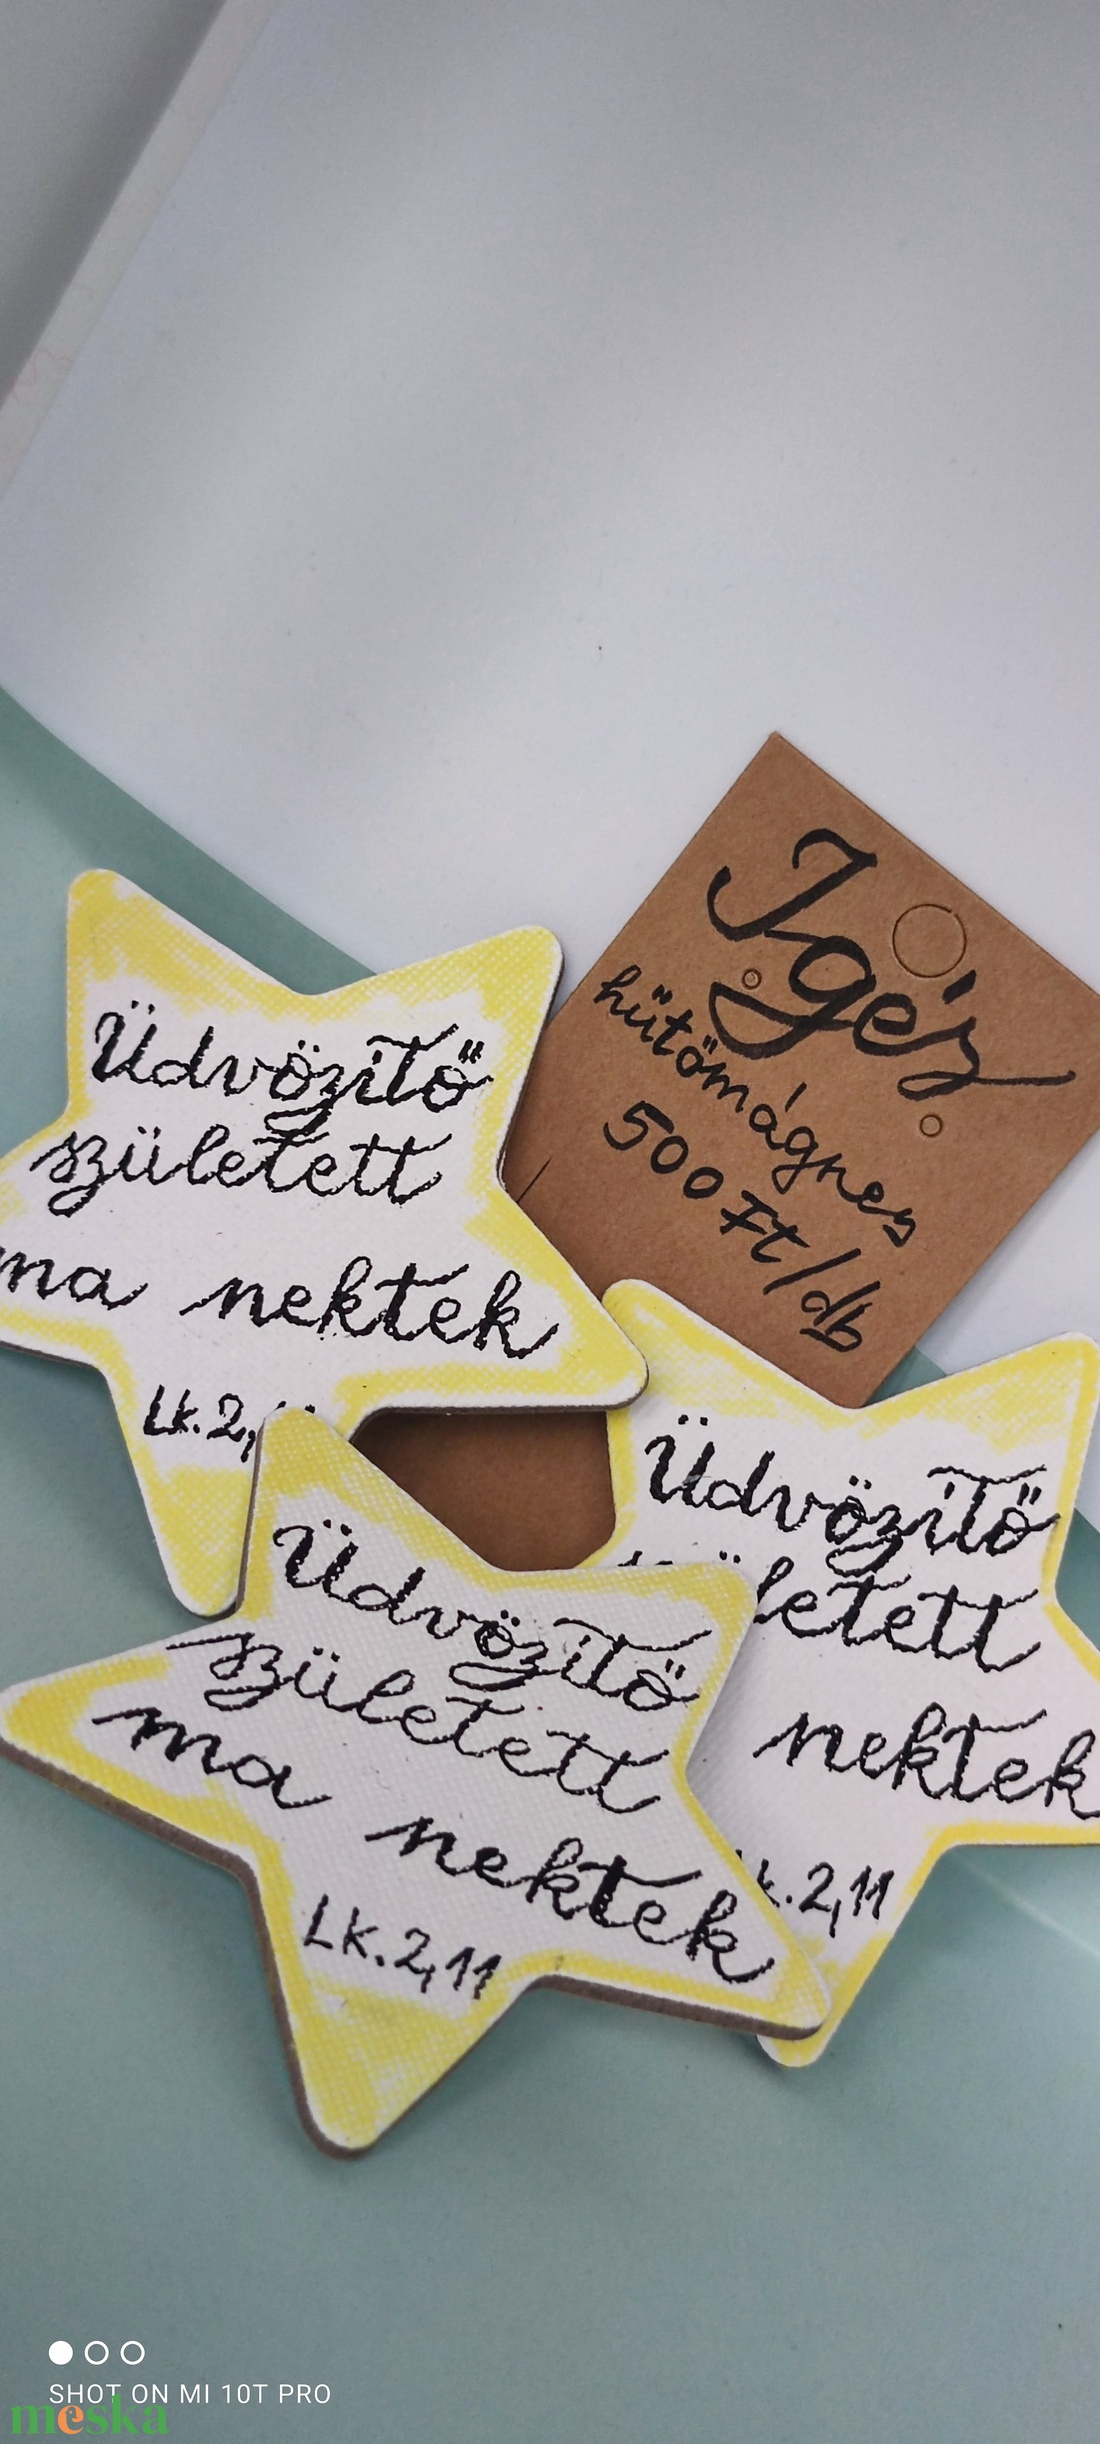 Üdvözítő
született
ma nektek
Lk. 2,
Igés
hűtőmágnes
500 Ft/db
Üdvözítő
nektek
2,11
Üdvözítő
született
ma nektek
Lk. 2,11
SHOT ON MI 10T PRO
meska